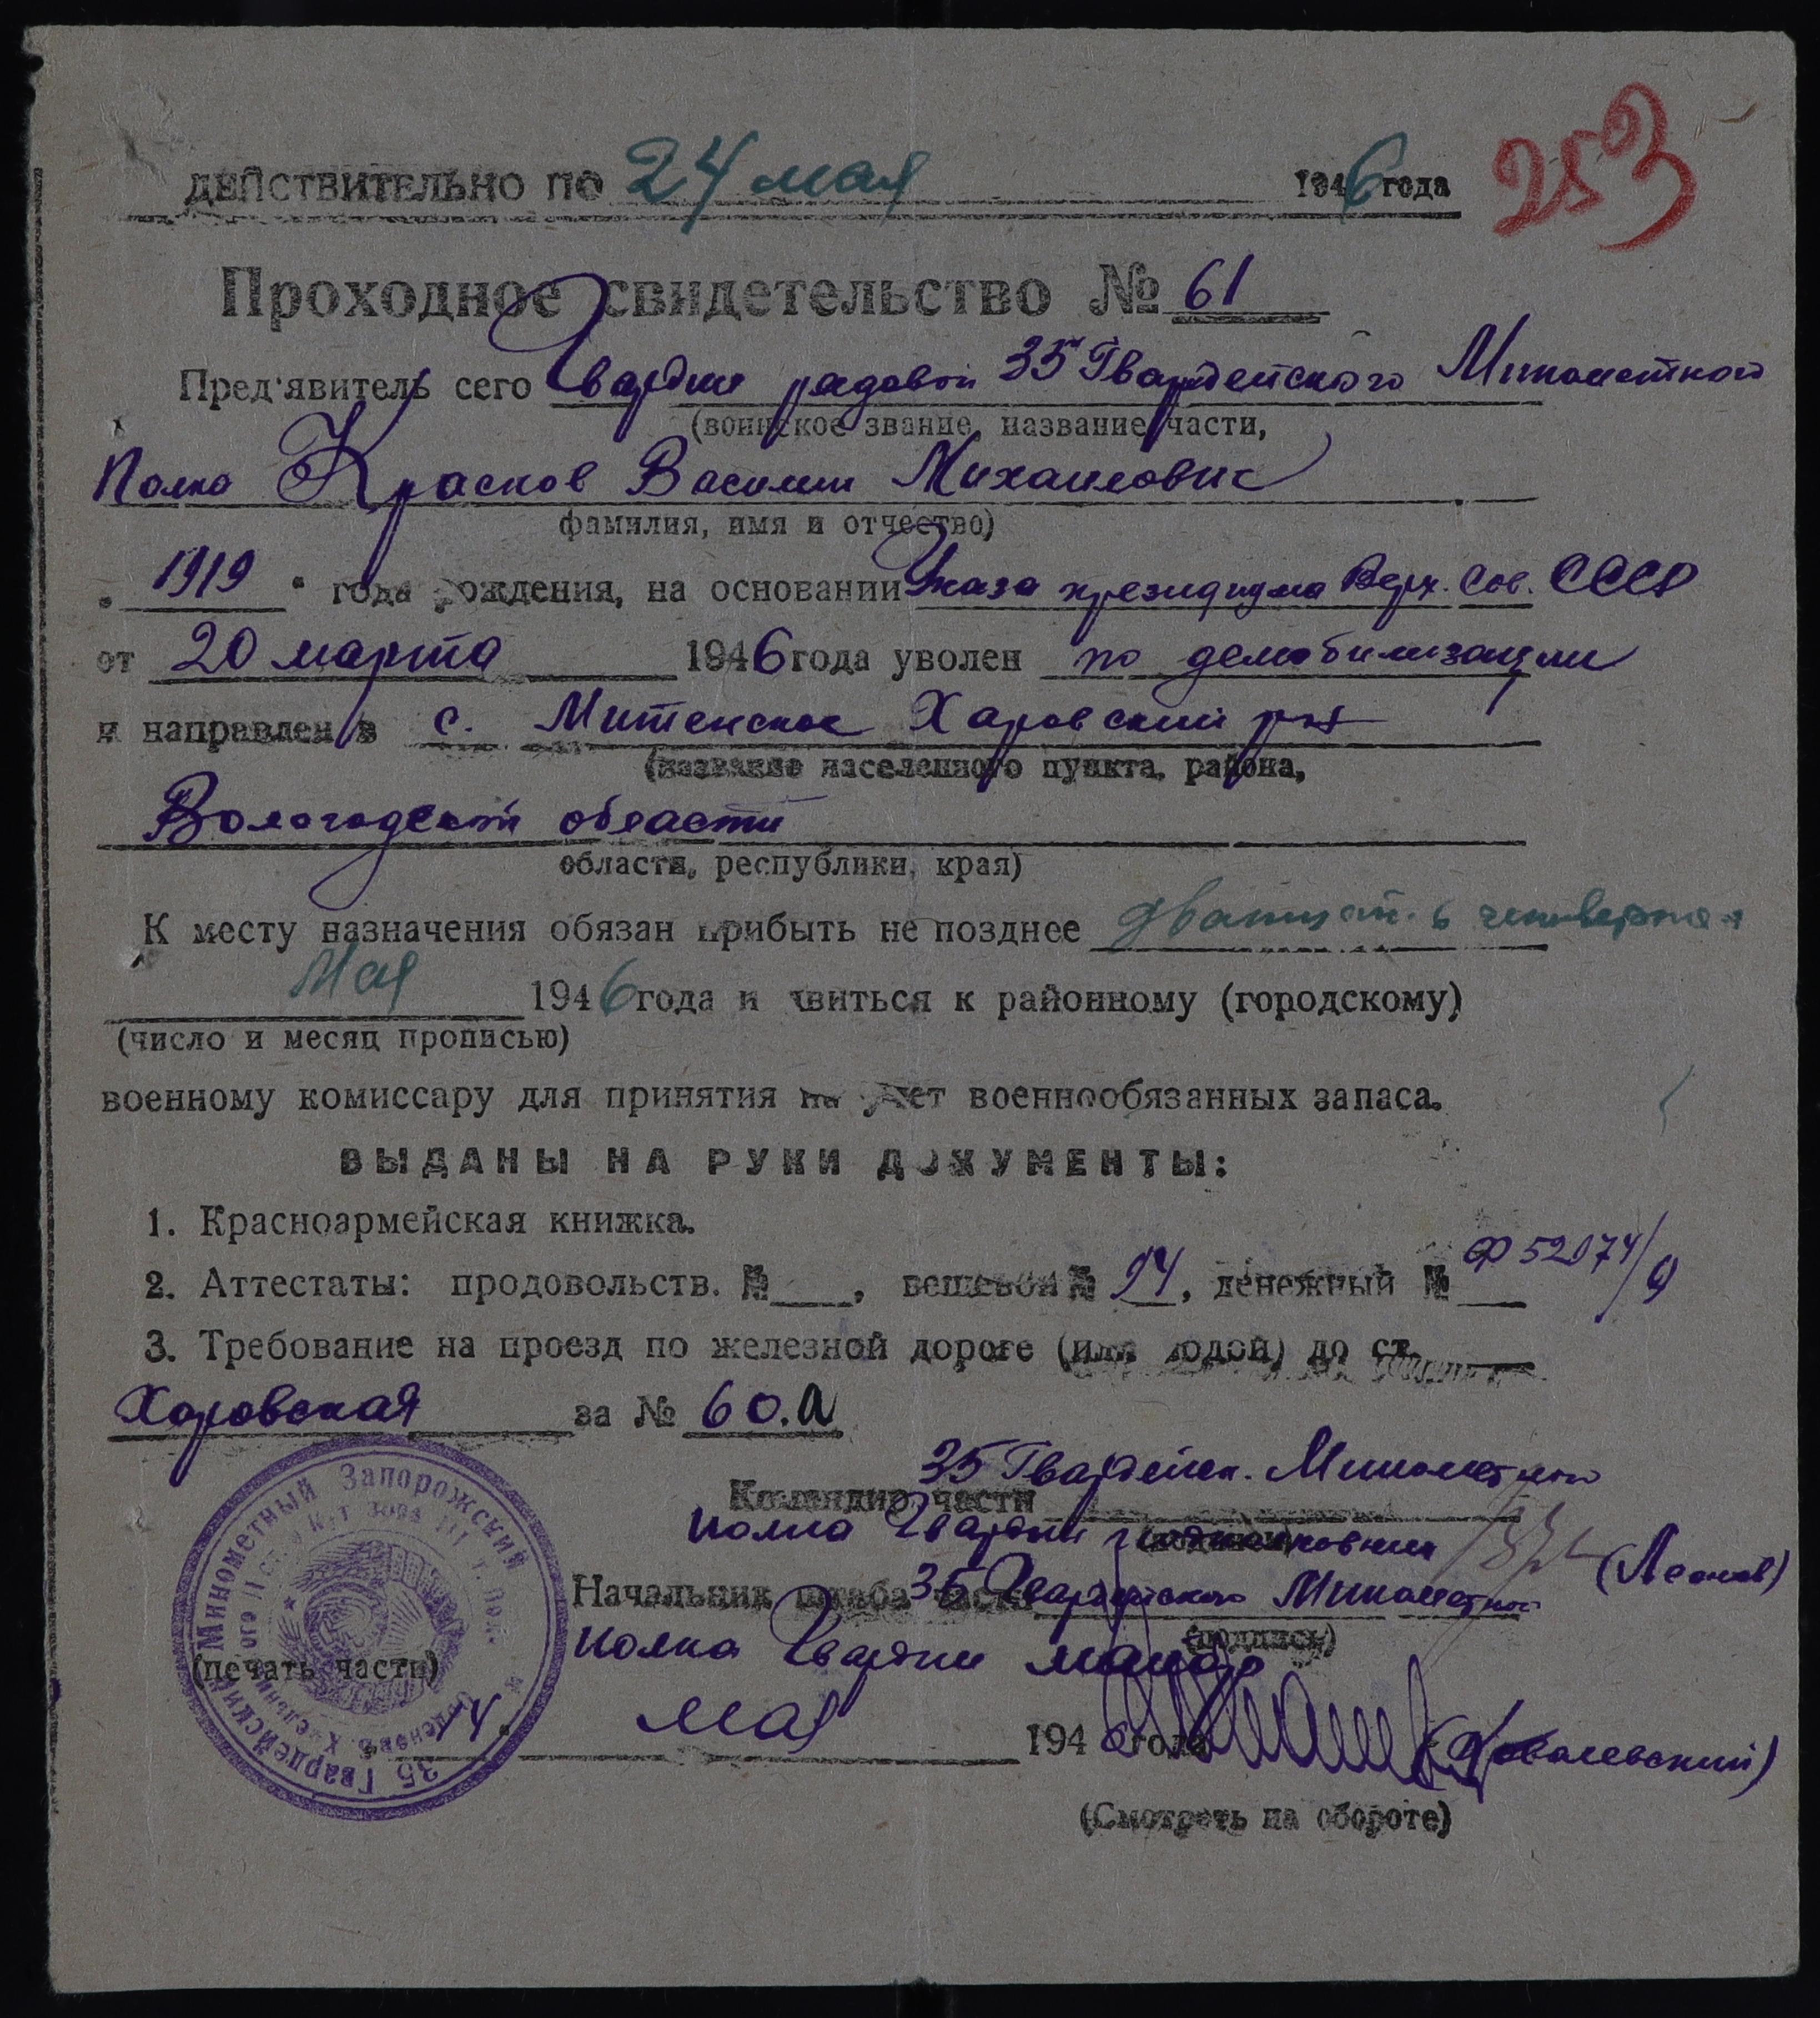 253
ДЕЙСТВИТЕЛЬНО ПО 24 мая 1946 года
Проходное свидетельство № 61
Пред'явитель сего Гвардии рядовой 35 Гвардейского Минометного
(воинское звание, название части,
Полка Краснов Василий Михайлович
фамилия, имя и отчество)
1919 года рождения, на основании Указа президиума Верх. Сов. СССР
от 20 марта 1946 года уволен по демобилизации
и направлен в с. Митенское Харовский р-н
(название населенного пункта, района,
Вологодской области
области, республики, края)
К месту назначения обязан прибыть не позднее двадцать четвертого
мая 1946 года и явиться к районному (городскому)
(число и месяц прописью)
военному комиссару для принятия на учет военнообязанных запаса.
ВЫДАНЫ НА РУКИ ДОКУМЕНТЫ:
1. Красноармейская книжка.
2. Аттестаты: продовольств. № , вещевой № 24, денежный №
3. Требование на проезд по железной дороге (или водой) до ст.
Харовская за № 60.а
35 Гвардейск. Минометного
Командир части
полка Гвардии подполковник (Леонов)
(подпись)
Начальник штаба части 35 Гвардейского Минометного
(подпись)
полка Гвардии майор
(печать части)
35 Гвардейский Минометный Запорожский
14 мая 1946 года (Ковалевский)
(Смотреть на обороте)